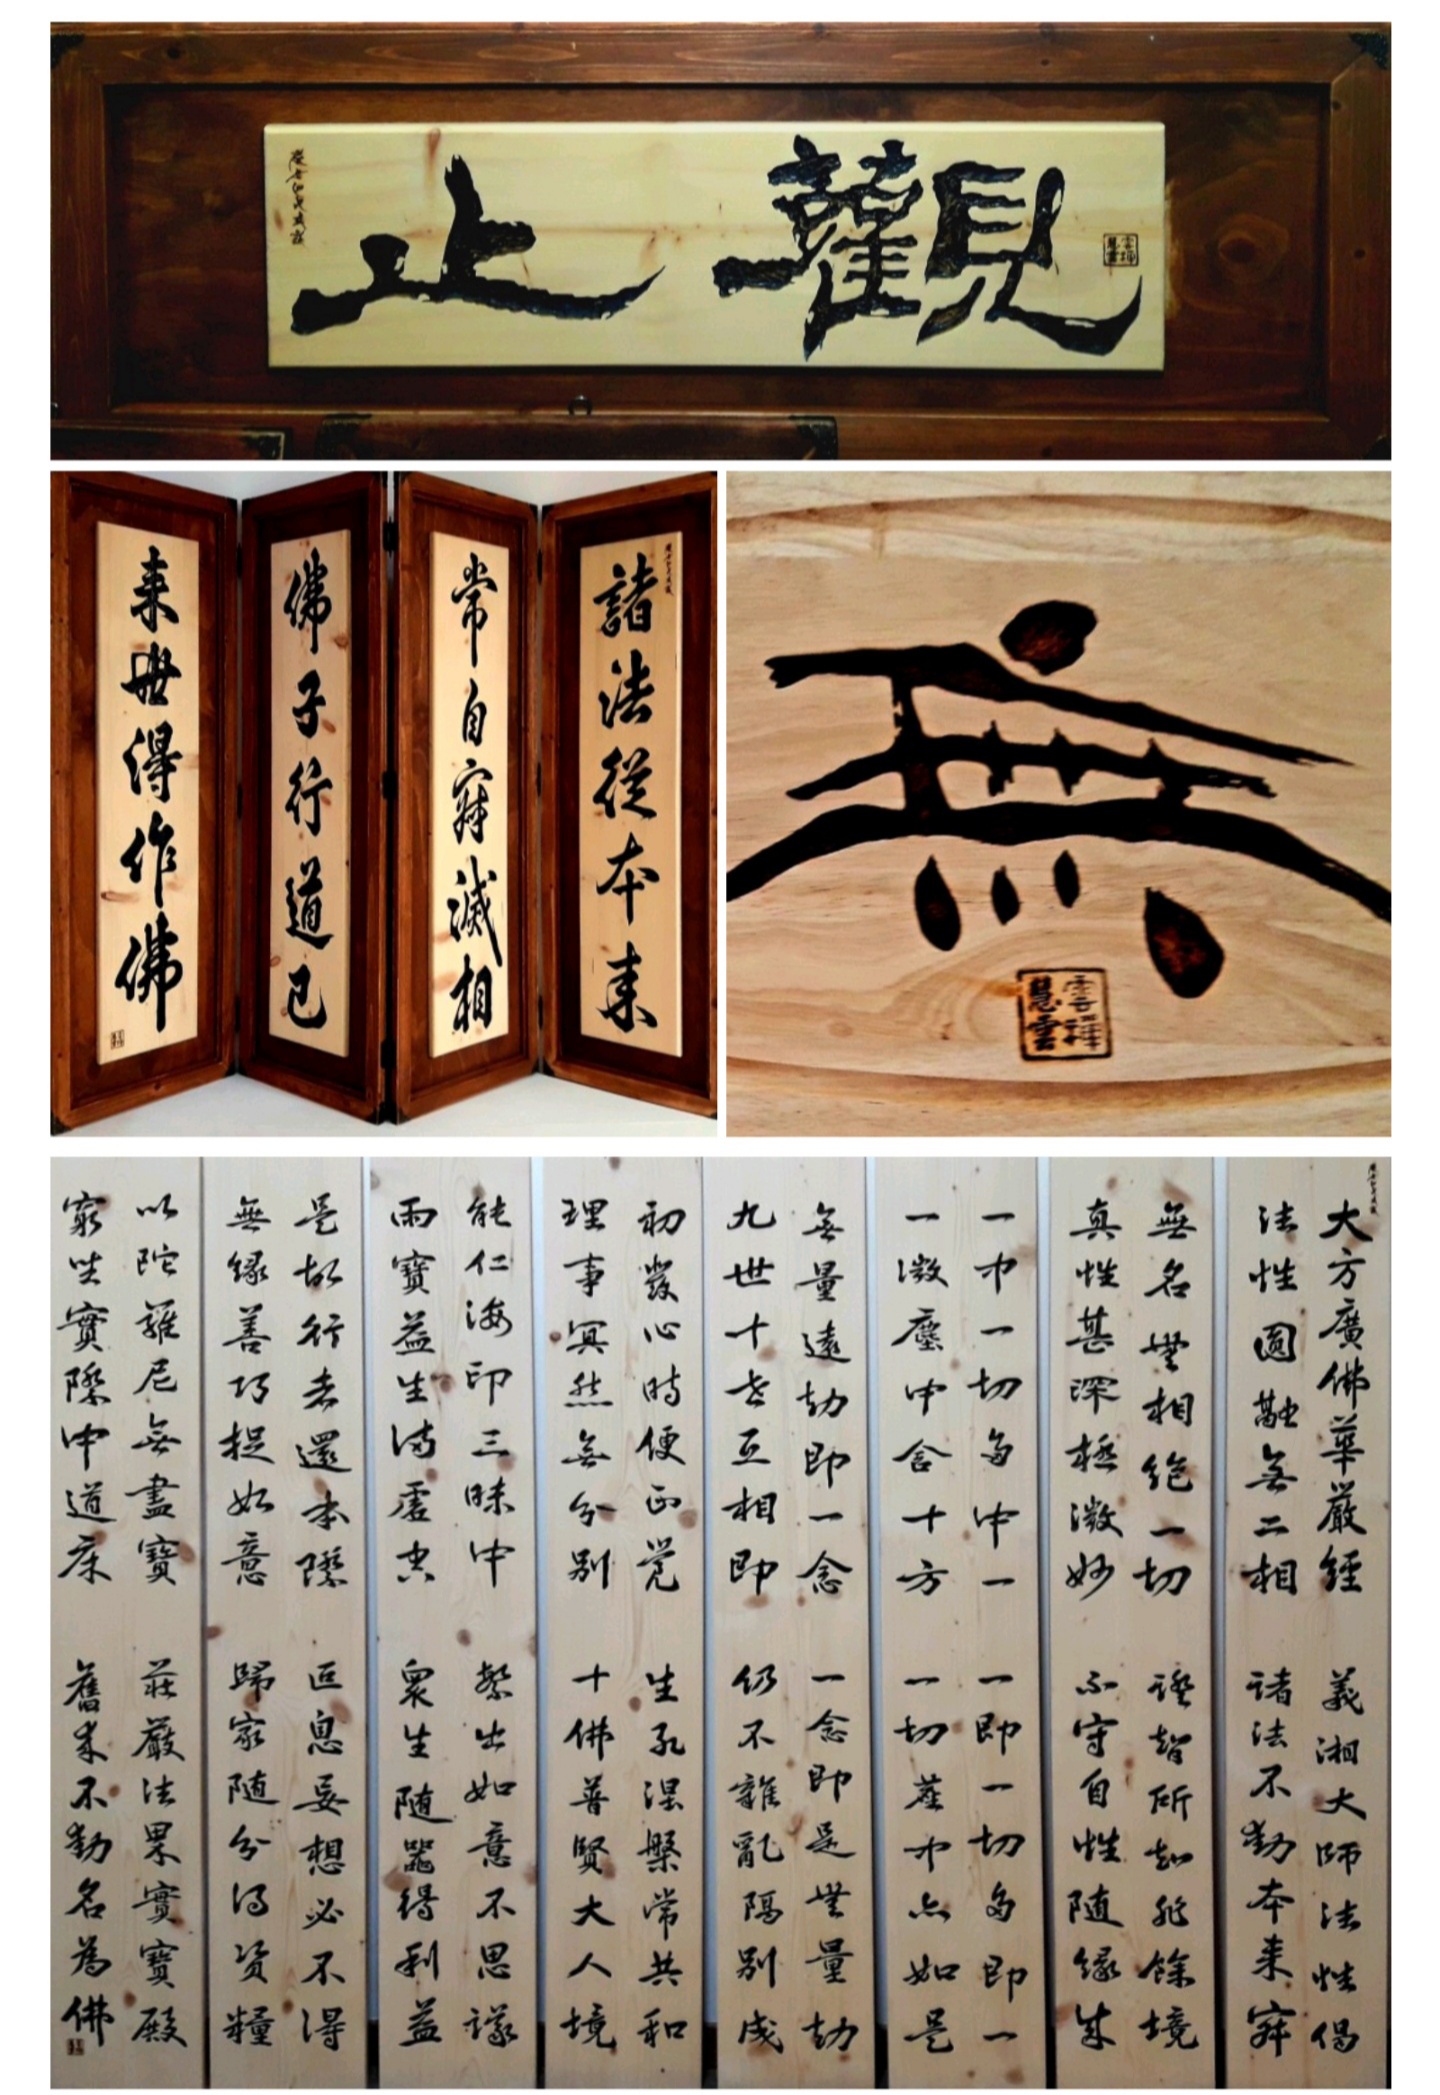 觀止
諸法從本来
常自寂滅相
佛子行道已
来世得作佛
無
雲祥
慧雲
大方廣佛華嚴經 義湘大師法性偈
法性圓融無二相 諸法不動本来寂
無名無相絶一切 證智所知非餘境
真性甚深極微妙 不守自性随緣成
一中一切多中一 一即一切多即一
一微塵中含十方 一切塵中亦如是
無量遠劫即一念 一念即是無量劫
九世十世互相即 仍不雜亂隔別成
初發心時便正覺 生死涅槃常共和
理事冥然無分別 十佛普賢大人境
能仁海印三昧中 繁出如意不思議
雨寶益生滿虛空 衆生随器得利益
是故行者還本際 叵息妄想必不得
無緣善巧捉如意 歸家随分得資糧
以陀羅尼無盡寶 莊嚴法界實寶殿
窮坐實際中道床 舊来不動名為佛